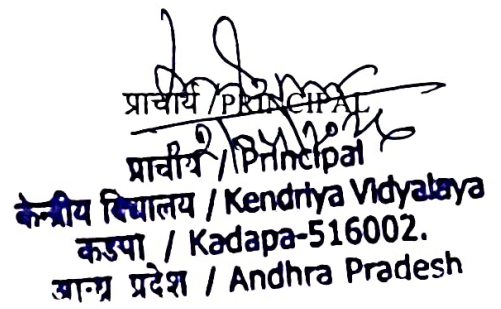 प्राचार्य /PRINCIPAL
प्राचार्य / Principal
केन्द्रीय विद्यालय / Kendriya Vidyalaya
कडपा / Kadapa-516002.
आन्ध्र प्रदेश / Andhra Pradesh